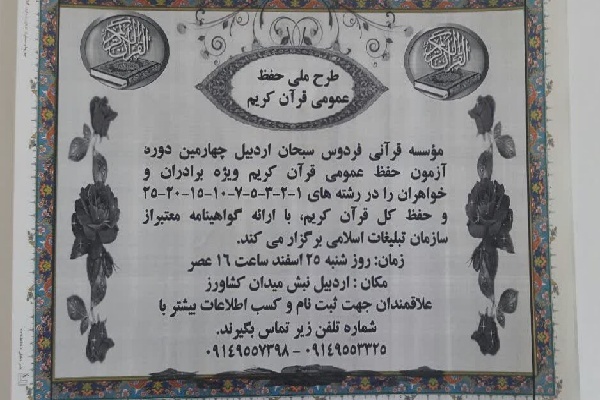 طرح ملی حفظ
عمومی قرآن کریم
مؤسسه قرآنی فردوس سبحان اردبیل چهارمین دوره
آزمون حفظ عمومی قرآن کریم ویژه برادران و
خواهران را در رشته های ۱-۲-۳-۵-۷-۱۰-۱۵-۲۰-۲۵
و حفظ کل قرآن کریم، با ارائه گواهینامه معتبراز
سازمان تبلیغات اسلامی برگزار می کند.
زمان: روز شنبه ۲۵ اسفند ساعت ۱۶ عصر
مکان : اردبیل نبش میدان کشاورز
علاقمندان جهت ثبت نام و کسب اطلاعات بیشتر با
شماره تلفن زیر تماس بگیرند.
۰۹۱۴۹۵۵۳۳۲۵ – ۰۹۱۴۹۵۵۷۳۹۸